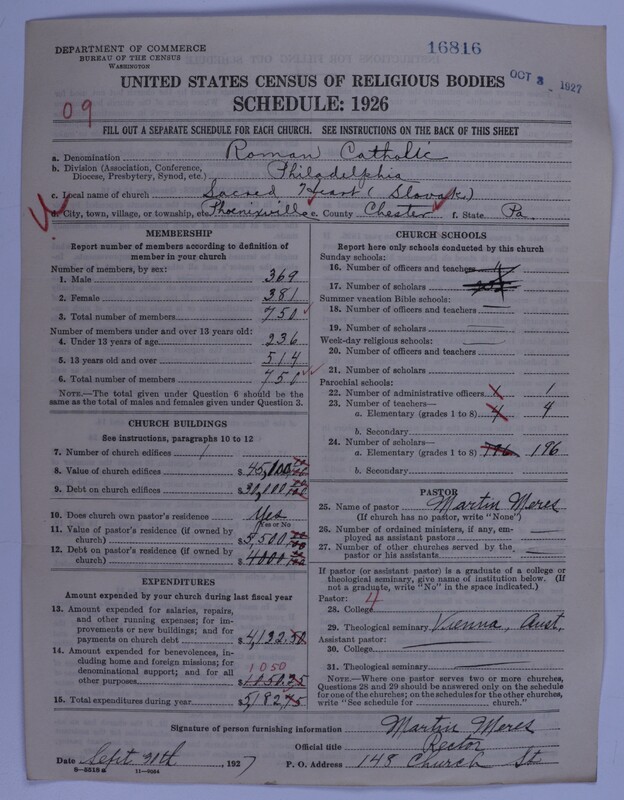 DEPARTMENT OF COMMERCE
BUREAU OF THE CENSUS
WASHINGTON
16816
UNITED STATES CENSUS OF RELIGIOUS BODIES
OCT 3 - 1927
SCHEDULE: 1926
09
FILL OUT A SEPARATE SCHEDULE FOR EACH CHURCH. SEE INSTRUCTIONS ON THE BACK OF THIS SHEET
a. Denomination Roman Catholic
b. Division (Association, Conference, Diocese, Presbytery, Synod, etc.) Philadelphia
c. Local name of church Sacred Heart (Slovak)
d. City, town, village, or township, etc. Phoenixville e. County Chester f. State Pa.
MEMBERSHIP
Report number of members according to definition of member in your church
Number of members, by sex:
1. Male 369
2. Female 381
3. Total number of members 750
Number of members under and over 13 years old:
4. Under 13 years of age 236
5. 13 years old and over 514
6. Total number of members 750
NOTE.—The total given under Question 6 should be the same as the total of males and females given under Question 3.
CHURCH BUILDINGS
See instructions, paragraphs 10 to 12
7. Number of church edifices 1
8. Value of church edifices $45,000
9. Debt on church edifices $30,000
10. Does church own pastor's residence Yes
Yes or No
11. Value of pastor's residence (if owned by church) $5,500
12. Debt on pastor's residence (if owned by church) $4000
EXPENDITURES
Amount expended by your church during last fiscal year
13. Amount expended for salaries, repairs, and other running expenses; for improvements or new buildings; and for payments on church debt $4,132.50
14. Amount expended for benevolences, including home and foreign missions; for denominational support; and for all other purposes 1050 $1050.25
15. Total expenditures during year $5,182.75
CHURCH SCHOOLS
Report here only schools conducted by this church
Sunday schools:
16. Number of officers and teachers
17. Number of scholars
Summer vacation Bible schools:
18. Number of officers and teachers
19. Number of scholars
Week-day religious schools:
20. Number of officers and teachers
21. Number of scholars
Parochial schools:
22. Number of administrative officers 1
23. Number of teachers—
a. Elementary (grades 1 to 8) 4 4
b. Secondary
24. Number of scholars—
a. Elementary (grades 1 to 8) 196 196
b. Secondary
PASTOR
25. Name of pastor Martin Meres
(If church has no pastor, write "None")
26. Number of ordained ministers, if any, employed as assistant pastors
27. Number of other churches served by the pastor or his assistants
If pastor (or assistant pastor) is a graduate of a college or theological seminary, give name of institution below. (If not a graduate, write "No" in the space indicated.)
Pastor: 4
28. College
29. Theological seminary Vienna, Aust.
Assistant pastor:
30. College
31. Theological seminary
NOTE.—Where one pastor serves two or more churches, Questions 28 and 29 should be answered only on the schedule for one of the churches; on the schedules for the other churches, write "See schedule for church."
Signature of person furnishing information Martin Meres
Official title Rector
Date Sept 1927 P. O. Address 148 Church St
8—5518 a 11—9084